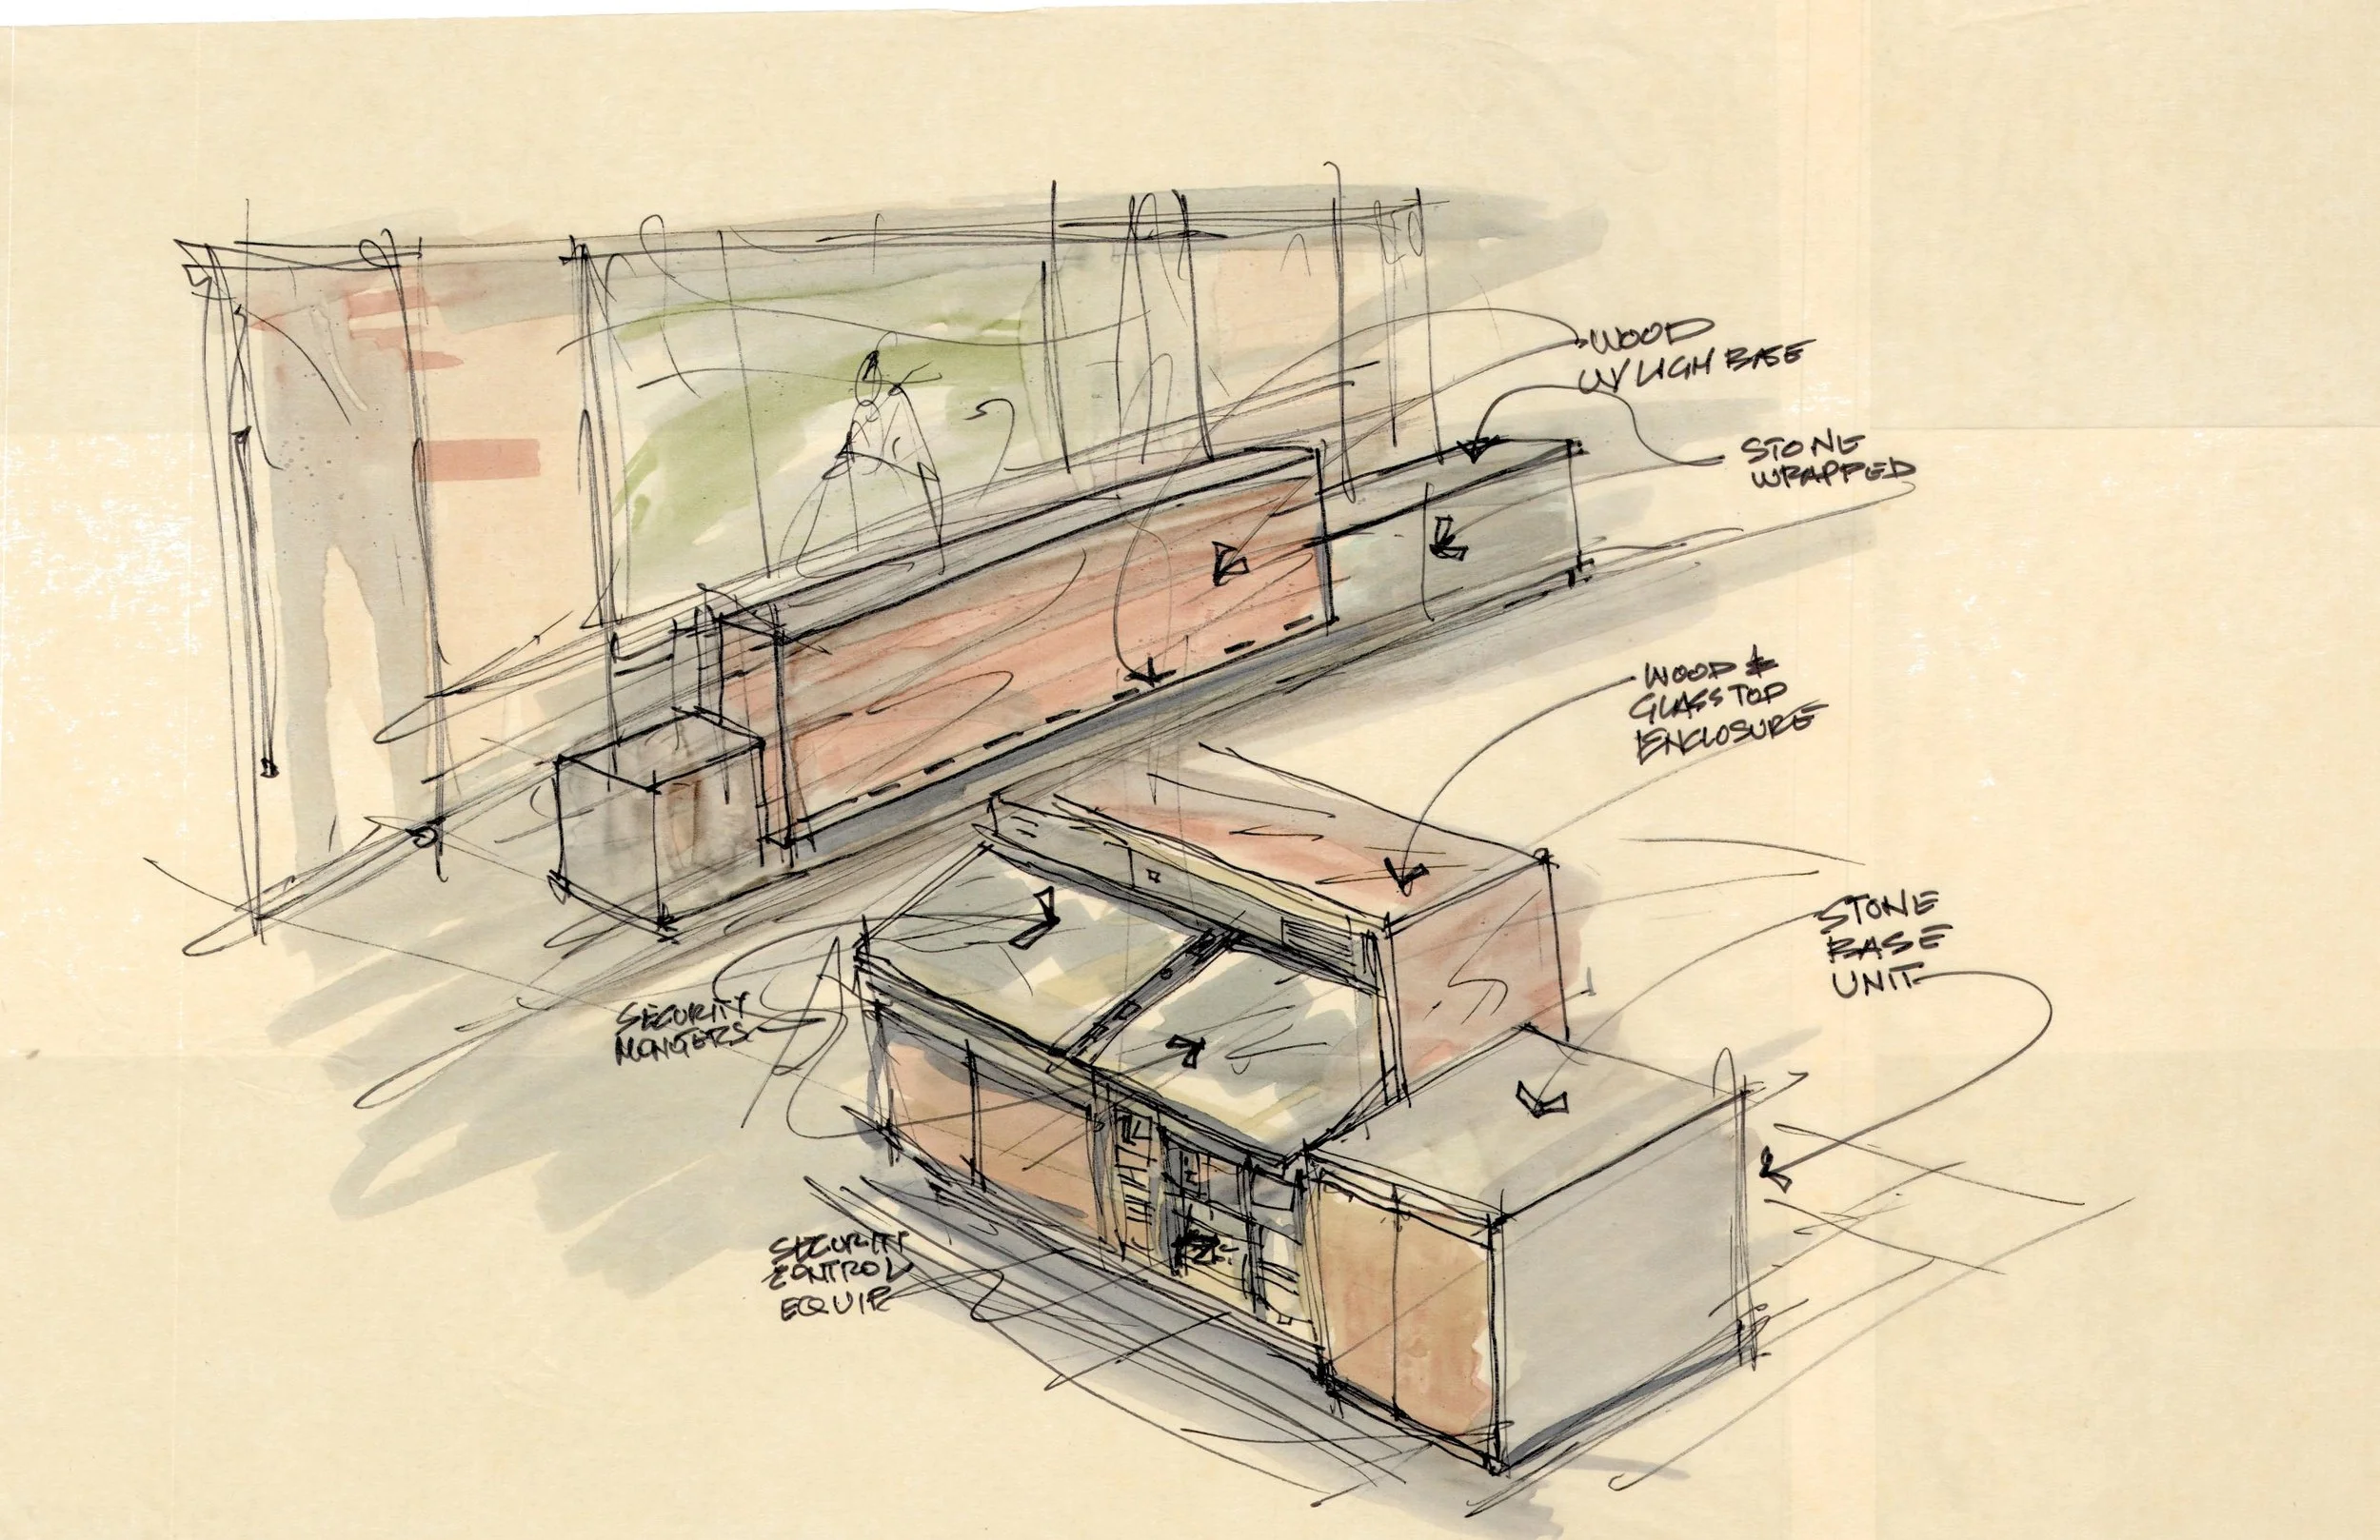 WOOD
W/ LIGH BASE
STONE
WRAPPED
WOOD &
GLASS TOP
ENCLOSURE
STONE
BASE
UNIT
SECURITY
MONITERS
SECURITY
CONTROL
EQUIP